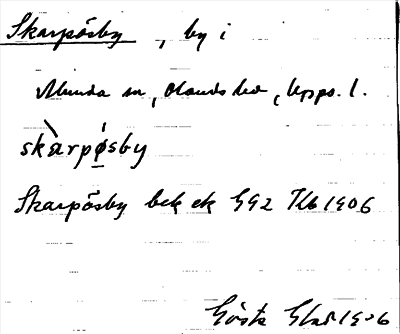 Skarpösby, by i
Munda sn, Olands hd, Upps. l.
skàrpǿsby
Skarpösby bek ek G92 Tlb 1906
Gösta 1906